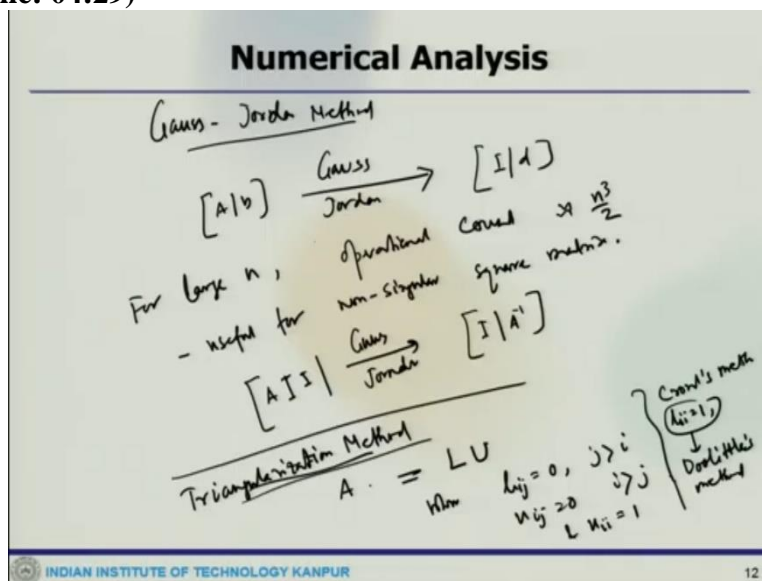 ne: 04:29)
Numerical Analysis
Gauss - Jordan Method
[A|b] Gauss Jordan → [I|d]
For large n, operational count is n³/2
- useful for non-singular square matrix.
[A I I | Gauss Jordan → [I|A⁻¹]
Triangularization Method
A = LU
when lij = 0, j>i
uij = 0 i>j
& uii = 1
Crout's meth
lii=1,
Doolittle's method
INDIAN INSTITUTE OF TECHNOLOGY KANPUR
12